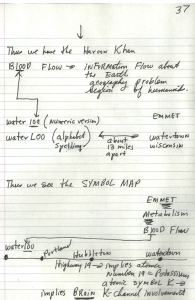 37
Thus we have the Harow Khan
BLOOD FLOW → INFORMATION Flow about
the Earth
geography problem
region of humanoids.
EMMET
water 100 (numeric version)
water LOO (alphabet spelling) ← about 13 miles apart → watertown wisconsin
Thus we see the SYMBOL MAP
EMMET
Metabolism
BLOOD Flow
water 100
Portland
Hubbleton
watertown
Highway 19 → implies atomic
Number 19 = Potassium
atomic symbol K
implies BRAIN K-channel involvement